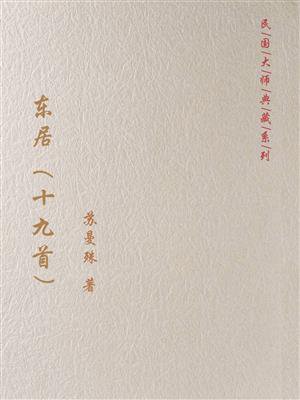 民|国|大|师|典|藏|系|列
东居（十九首）
苏曼殊 著